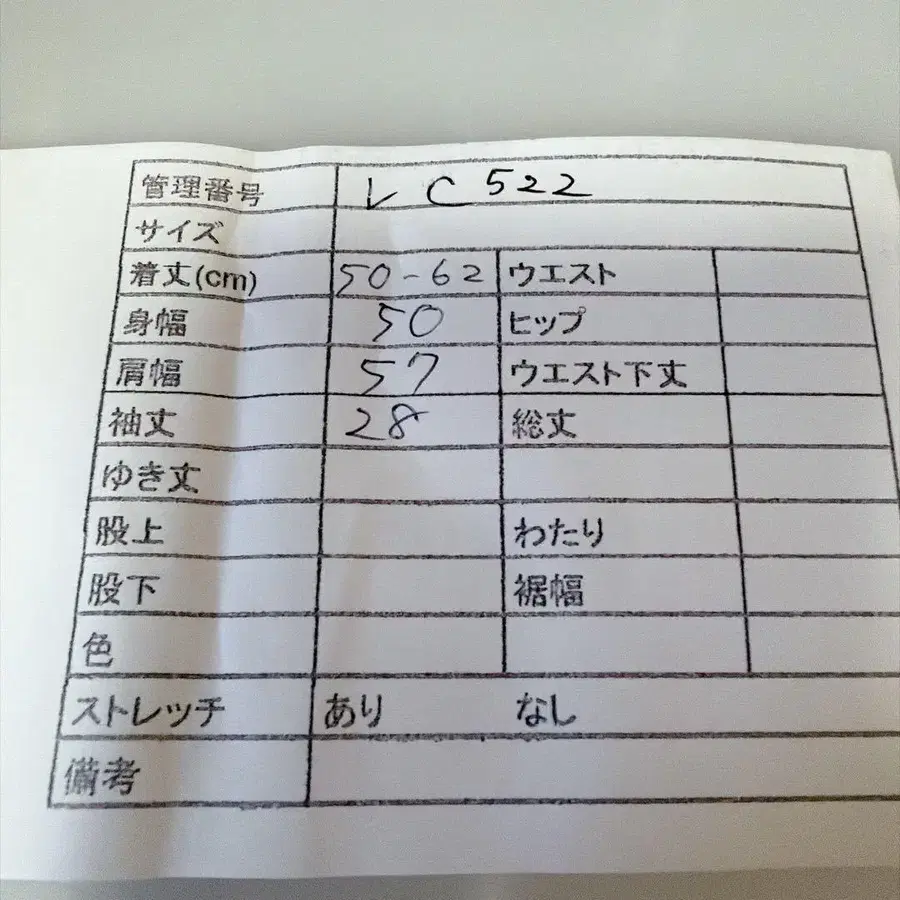 管理番号 VC522
サイズ
着丈(cm) 50-62 ウエスト
身幅 50 ヒップ
肩幅 57 ウエスト下丈
袖丈 28 総丈
ゆき丈
股上 わたり
股下 裾幅
色
ストレッチ あり なし
備考